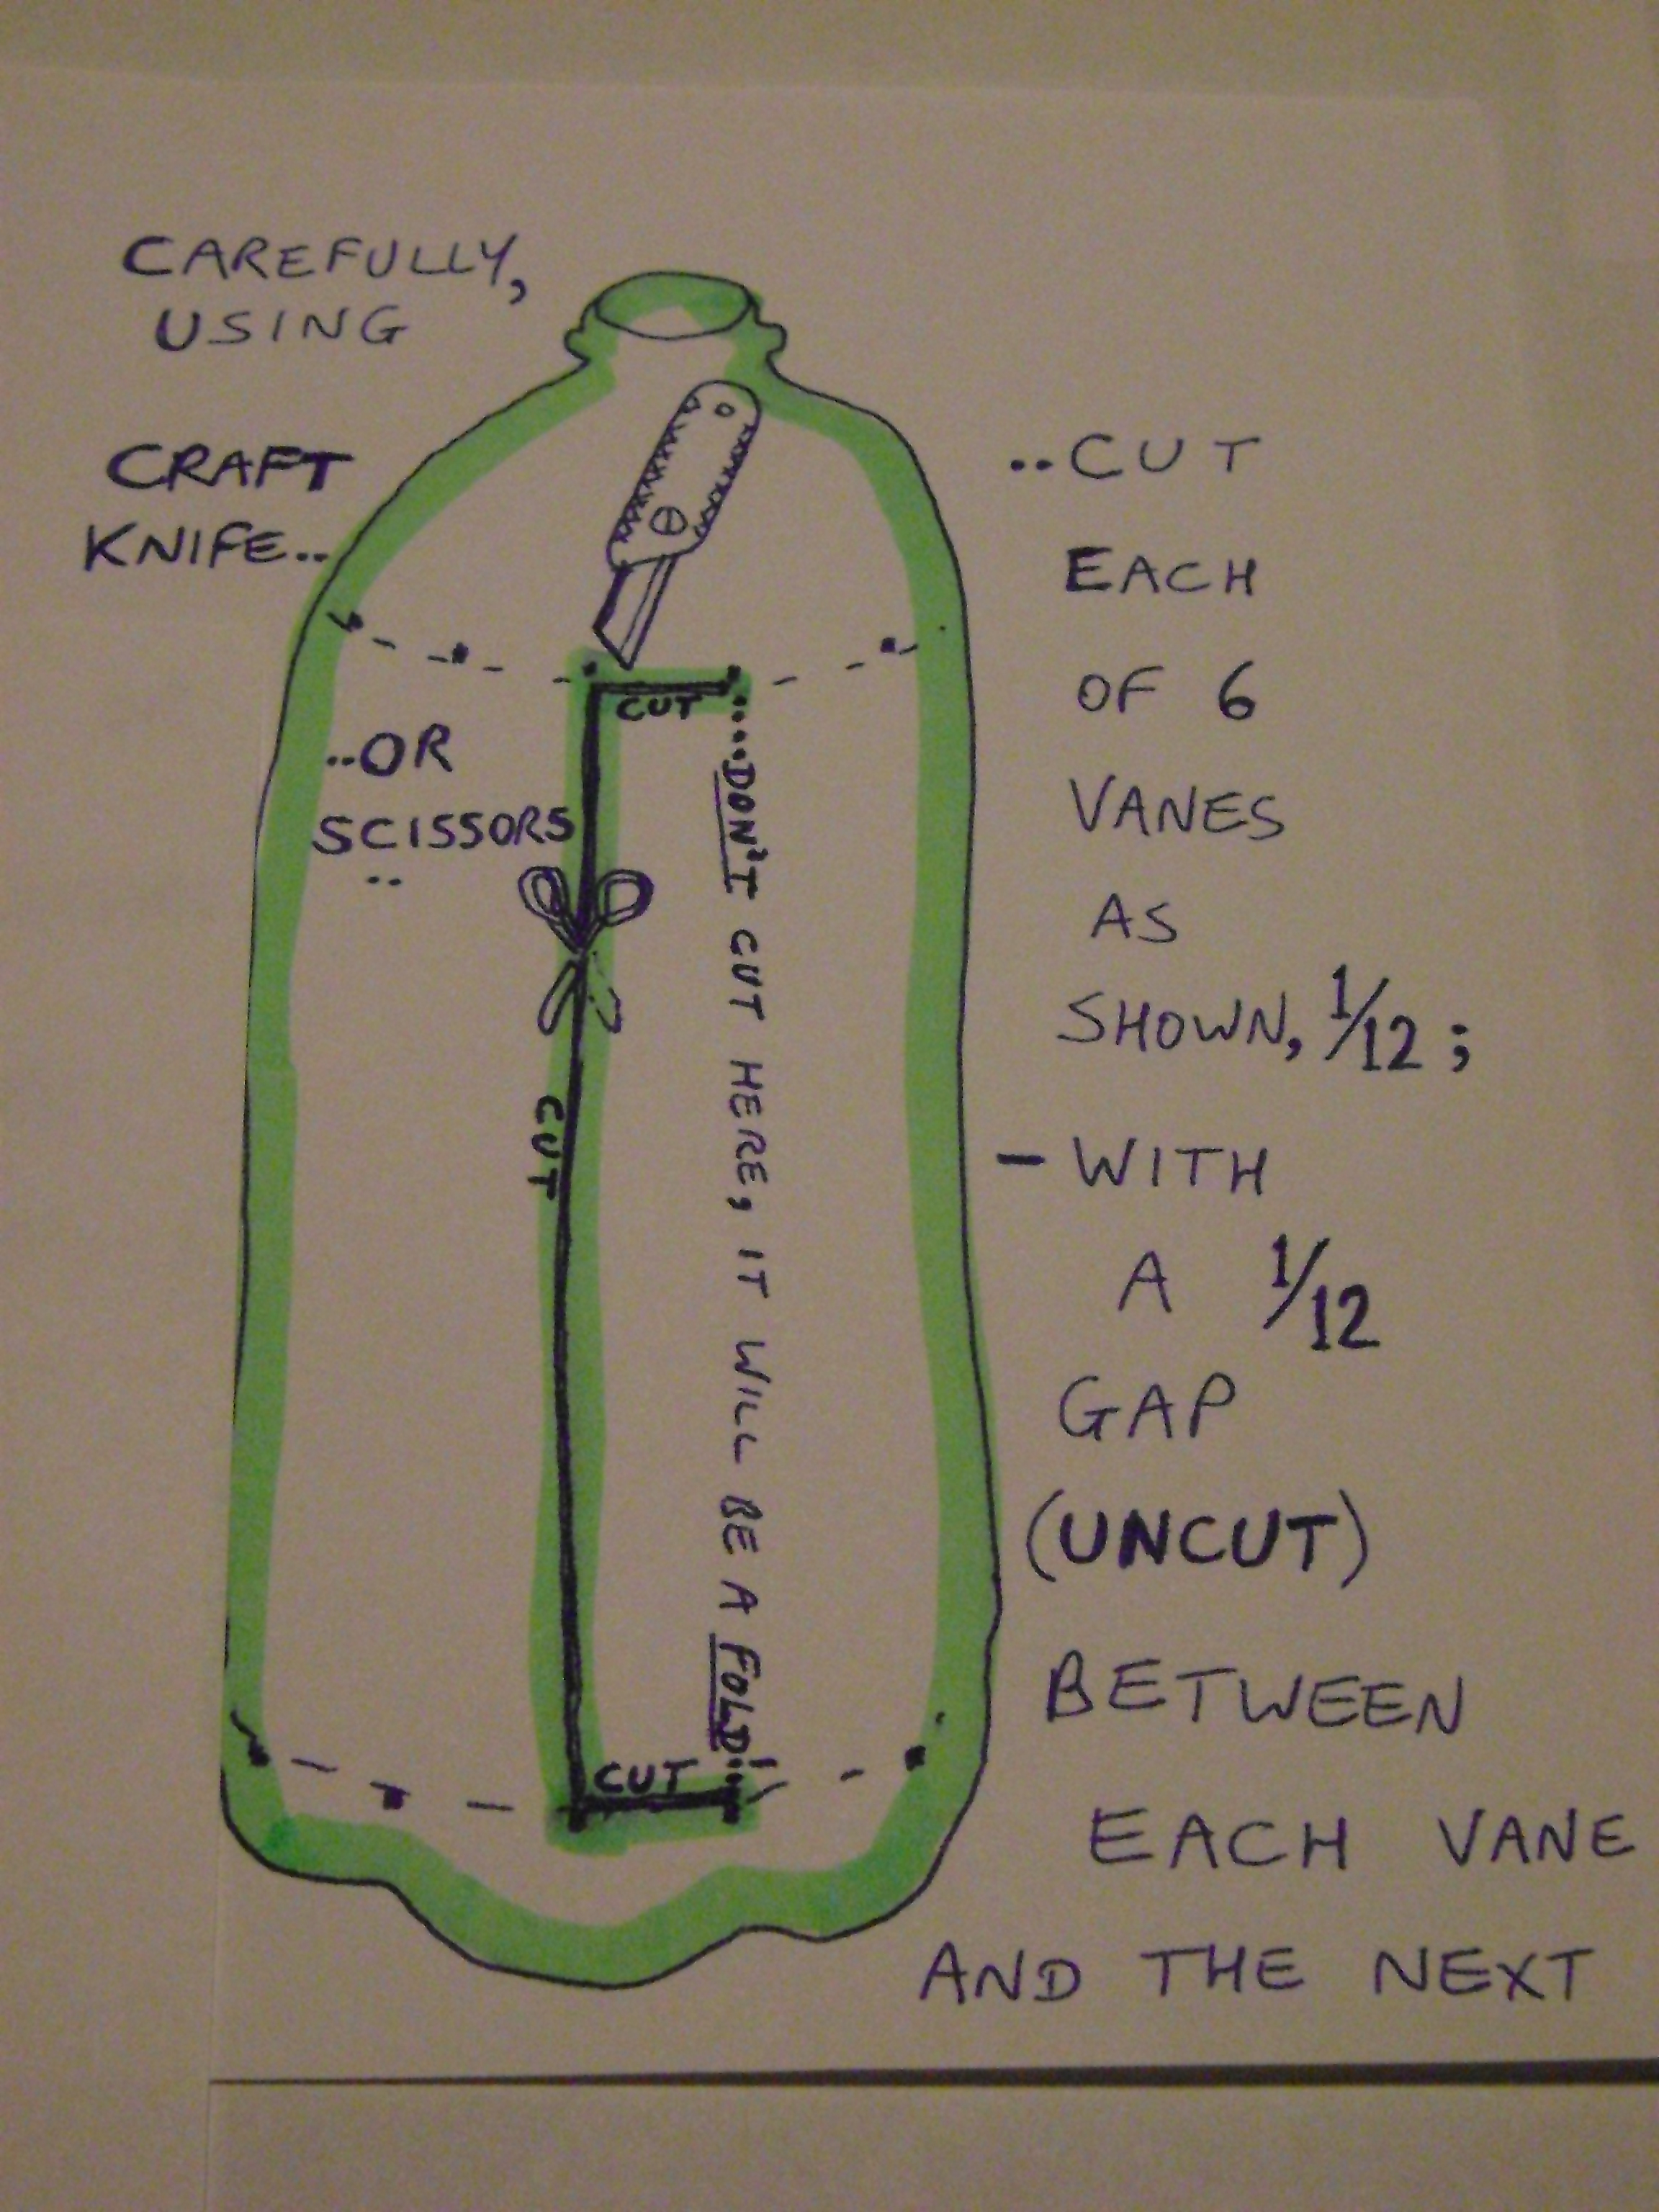 CAREFULLY,
USING
CRAFT
KNIFE..
..OR
SCISSORS
..
CUT
CUT
CUT
....DON'T CUT HERE, IT WILL BE A FOLD!...
..CUT
EACH
OF 6
VANES
AS
SHOWN, 1/12 ;
- WITH
A 1/12
GAP
(UNCUT)
BETWEEN
EACH VANE
AND THE NEXT